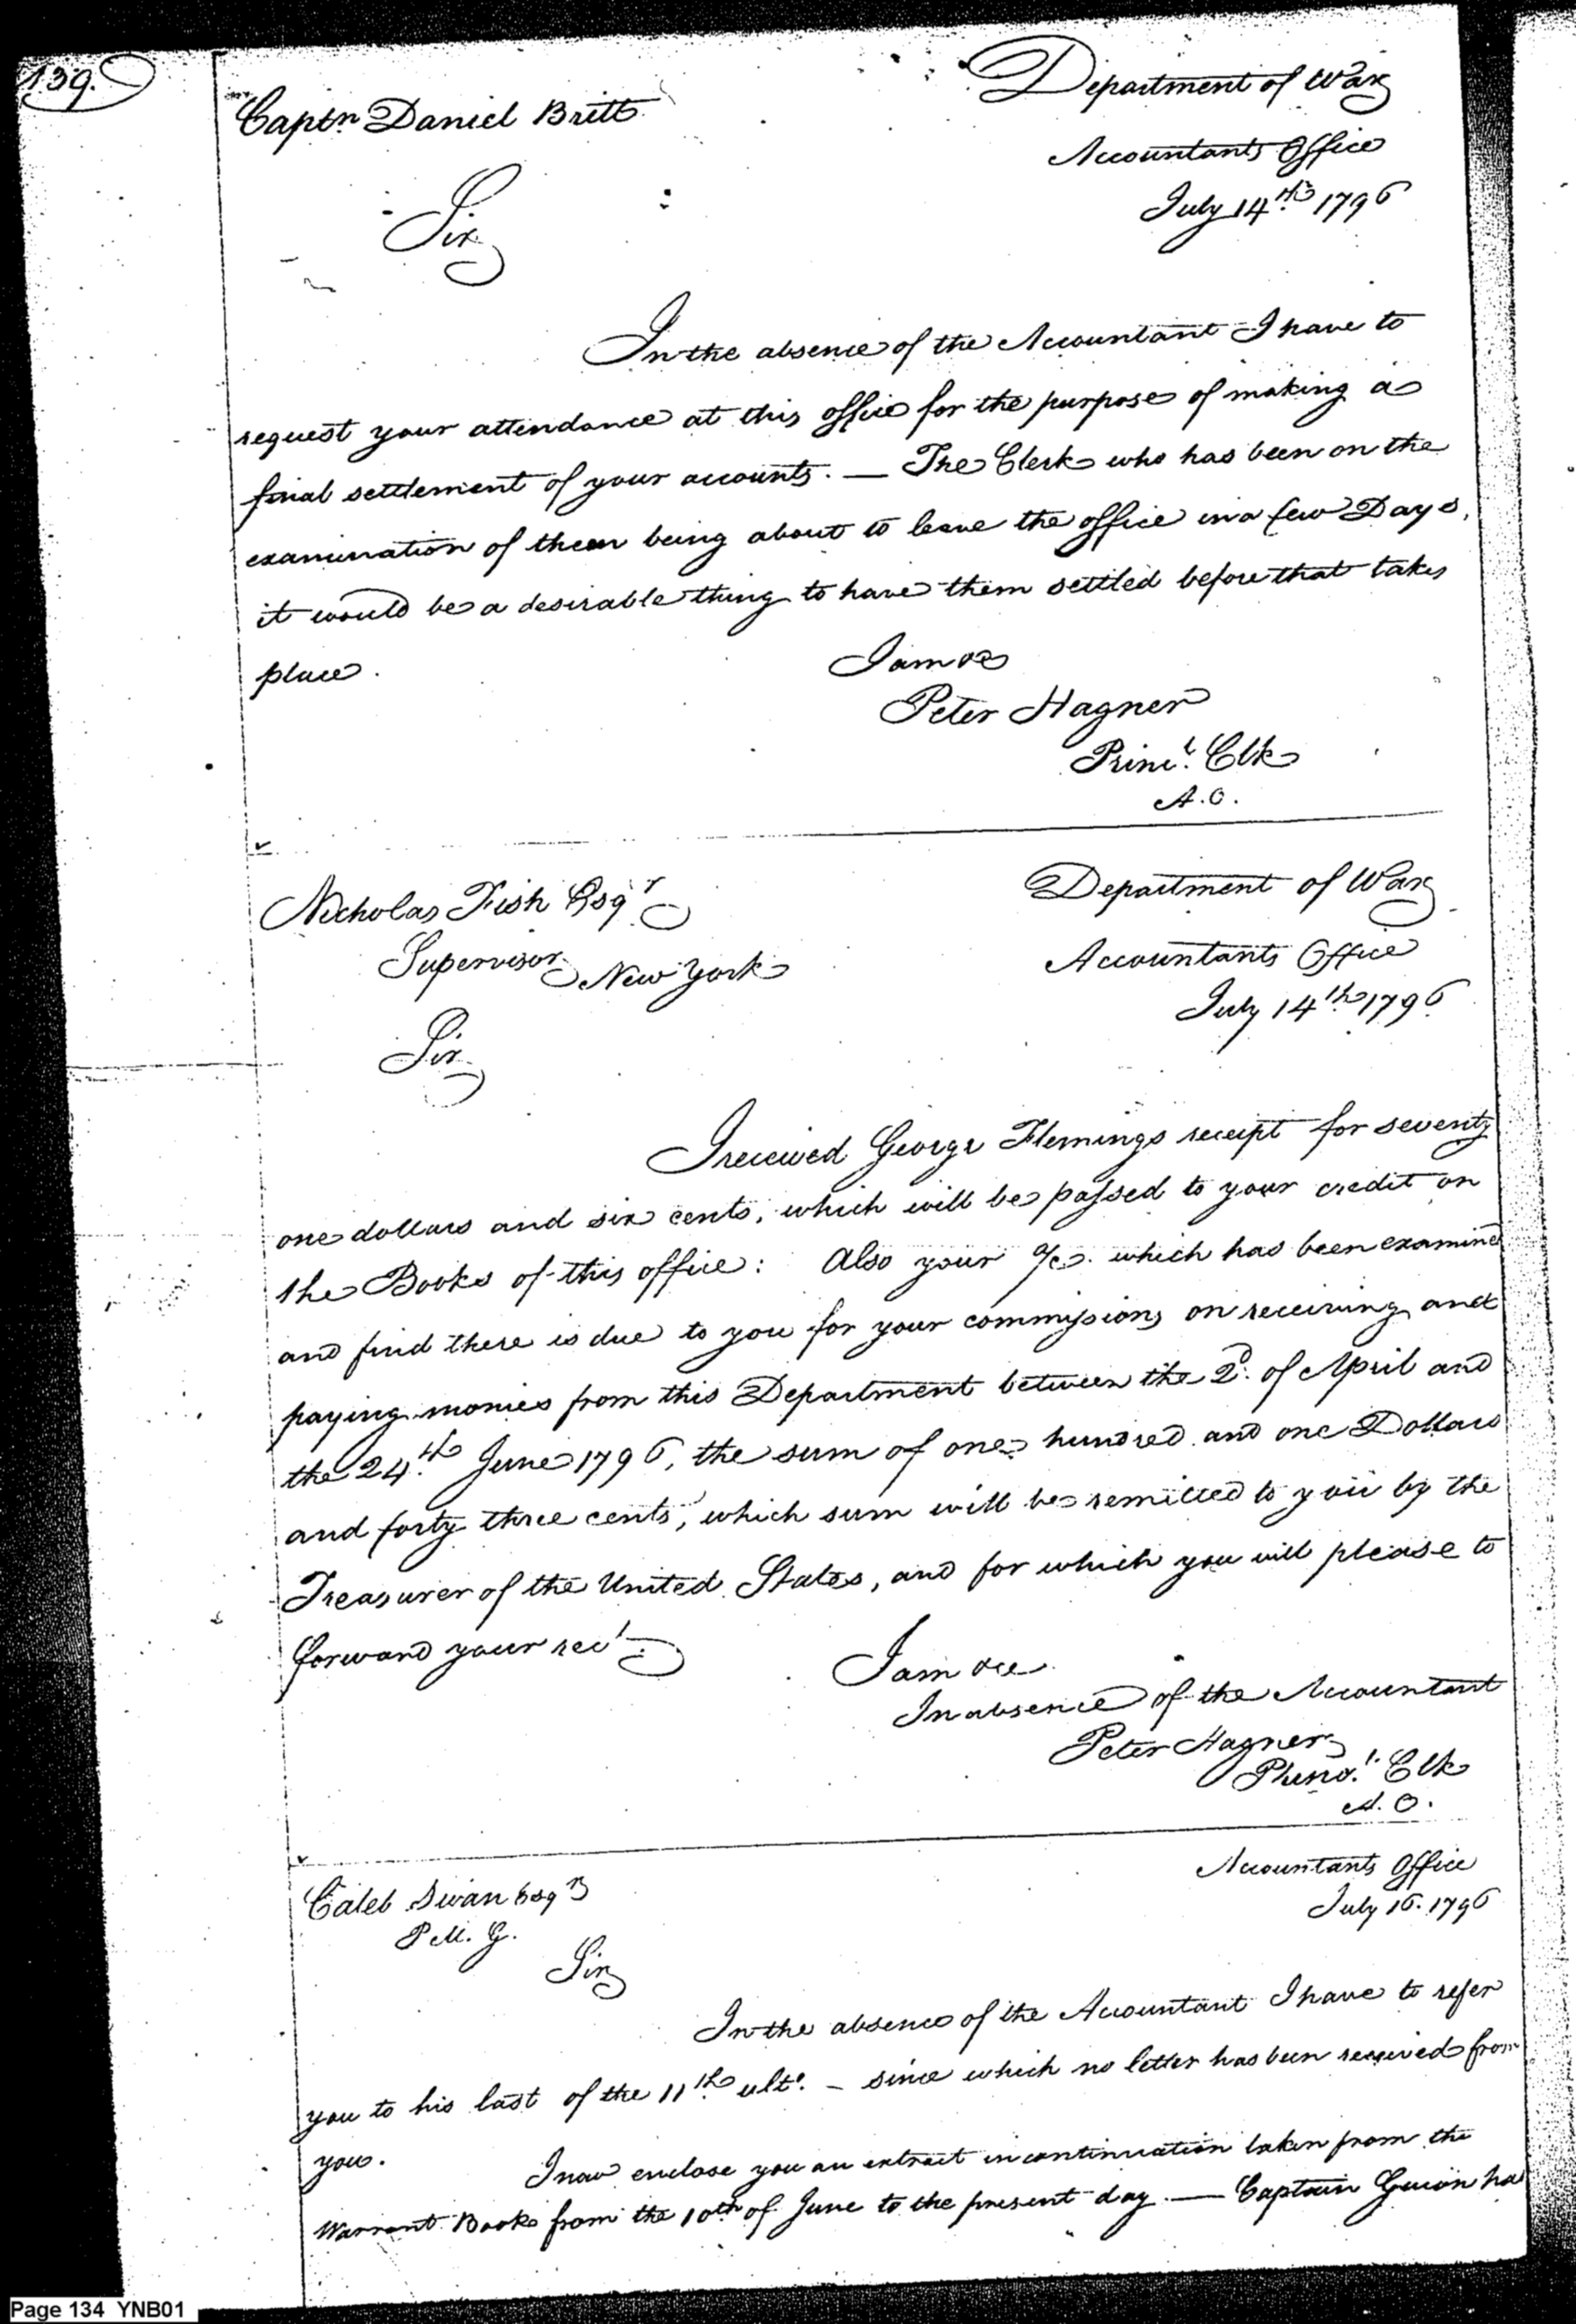 139.
Captn Daniel Britt
Department of War
Accountants Office
July 14th 1796
Sir
In the absence of the Accountant I have to
request your attendance at this office for the purpose of making a
final settlement of your accounts. — The Clerk who has been on the
examination of them being about to leave the office in a few Days,
it would be a desirable thing to have them settled before that takes
place.
I am &c
Peter Hagner
Princl. Clk
A.O.
Nicholas Fish Esqr
Supervisor New York
Department of War
Accountants Office
July 14th 1796
Sir
I received George Flemings receipt for seventy
one dollars and six cents, which will be passed to your credit on
the Books of this office: Also your a/c. which has been examined
and find there is due to you for your commissions on receiving and
paying monies from this Department between the 2d. of April and
the 24th June 1796, the sum of one hundred and one Dollars
and forty three cents, which sum will be remitted to you by the
Treasurer of the United States, and for which you will please to
forward your rect.
I am &ce
In absence of the Accountant
Peter Hagner
Clk
A.O.
Caleb Swan Esqr
P.M.G.
Accountants Office
July 16. 1796
Sir
In the absence of the Accountant I have to refer
you to his last of the 11th ulto. – since which no letter has been received from
you.
I now enclose you an extract in continuation taken from the
Warrant Book from the 10th of June to the present day. — Captain Guion has
Page 134 YNB01